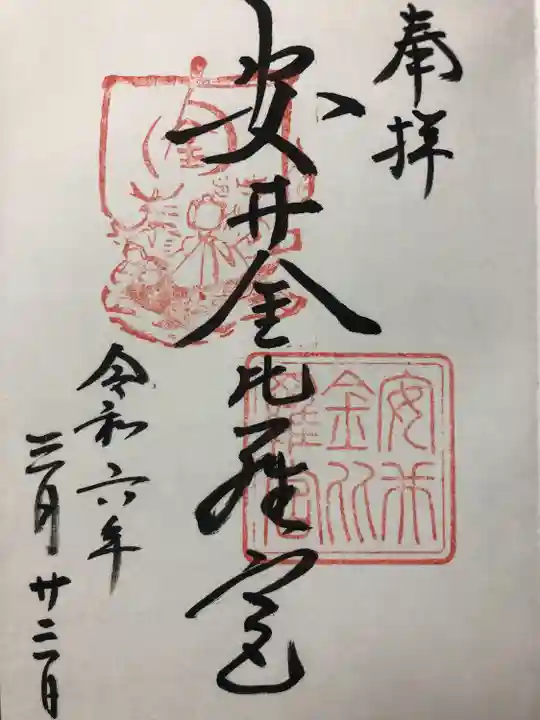 奉拝
安井金比羅宮
令和六年
三月廿二日
安井
金比
羅宮
金